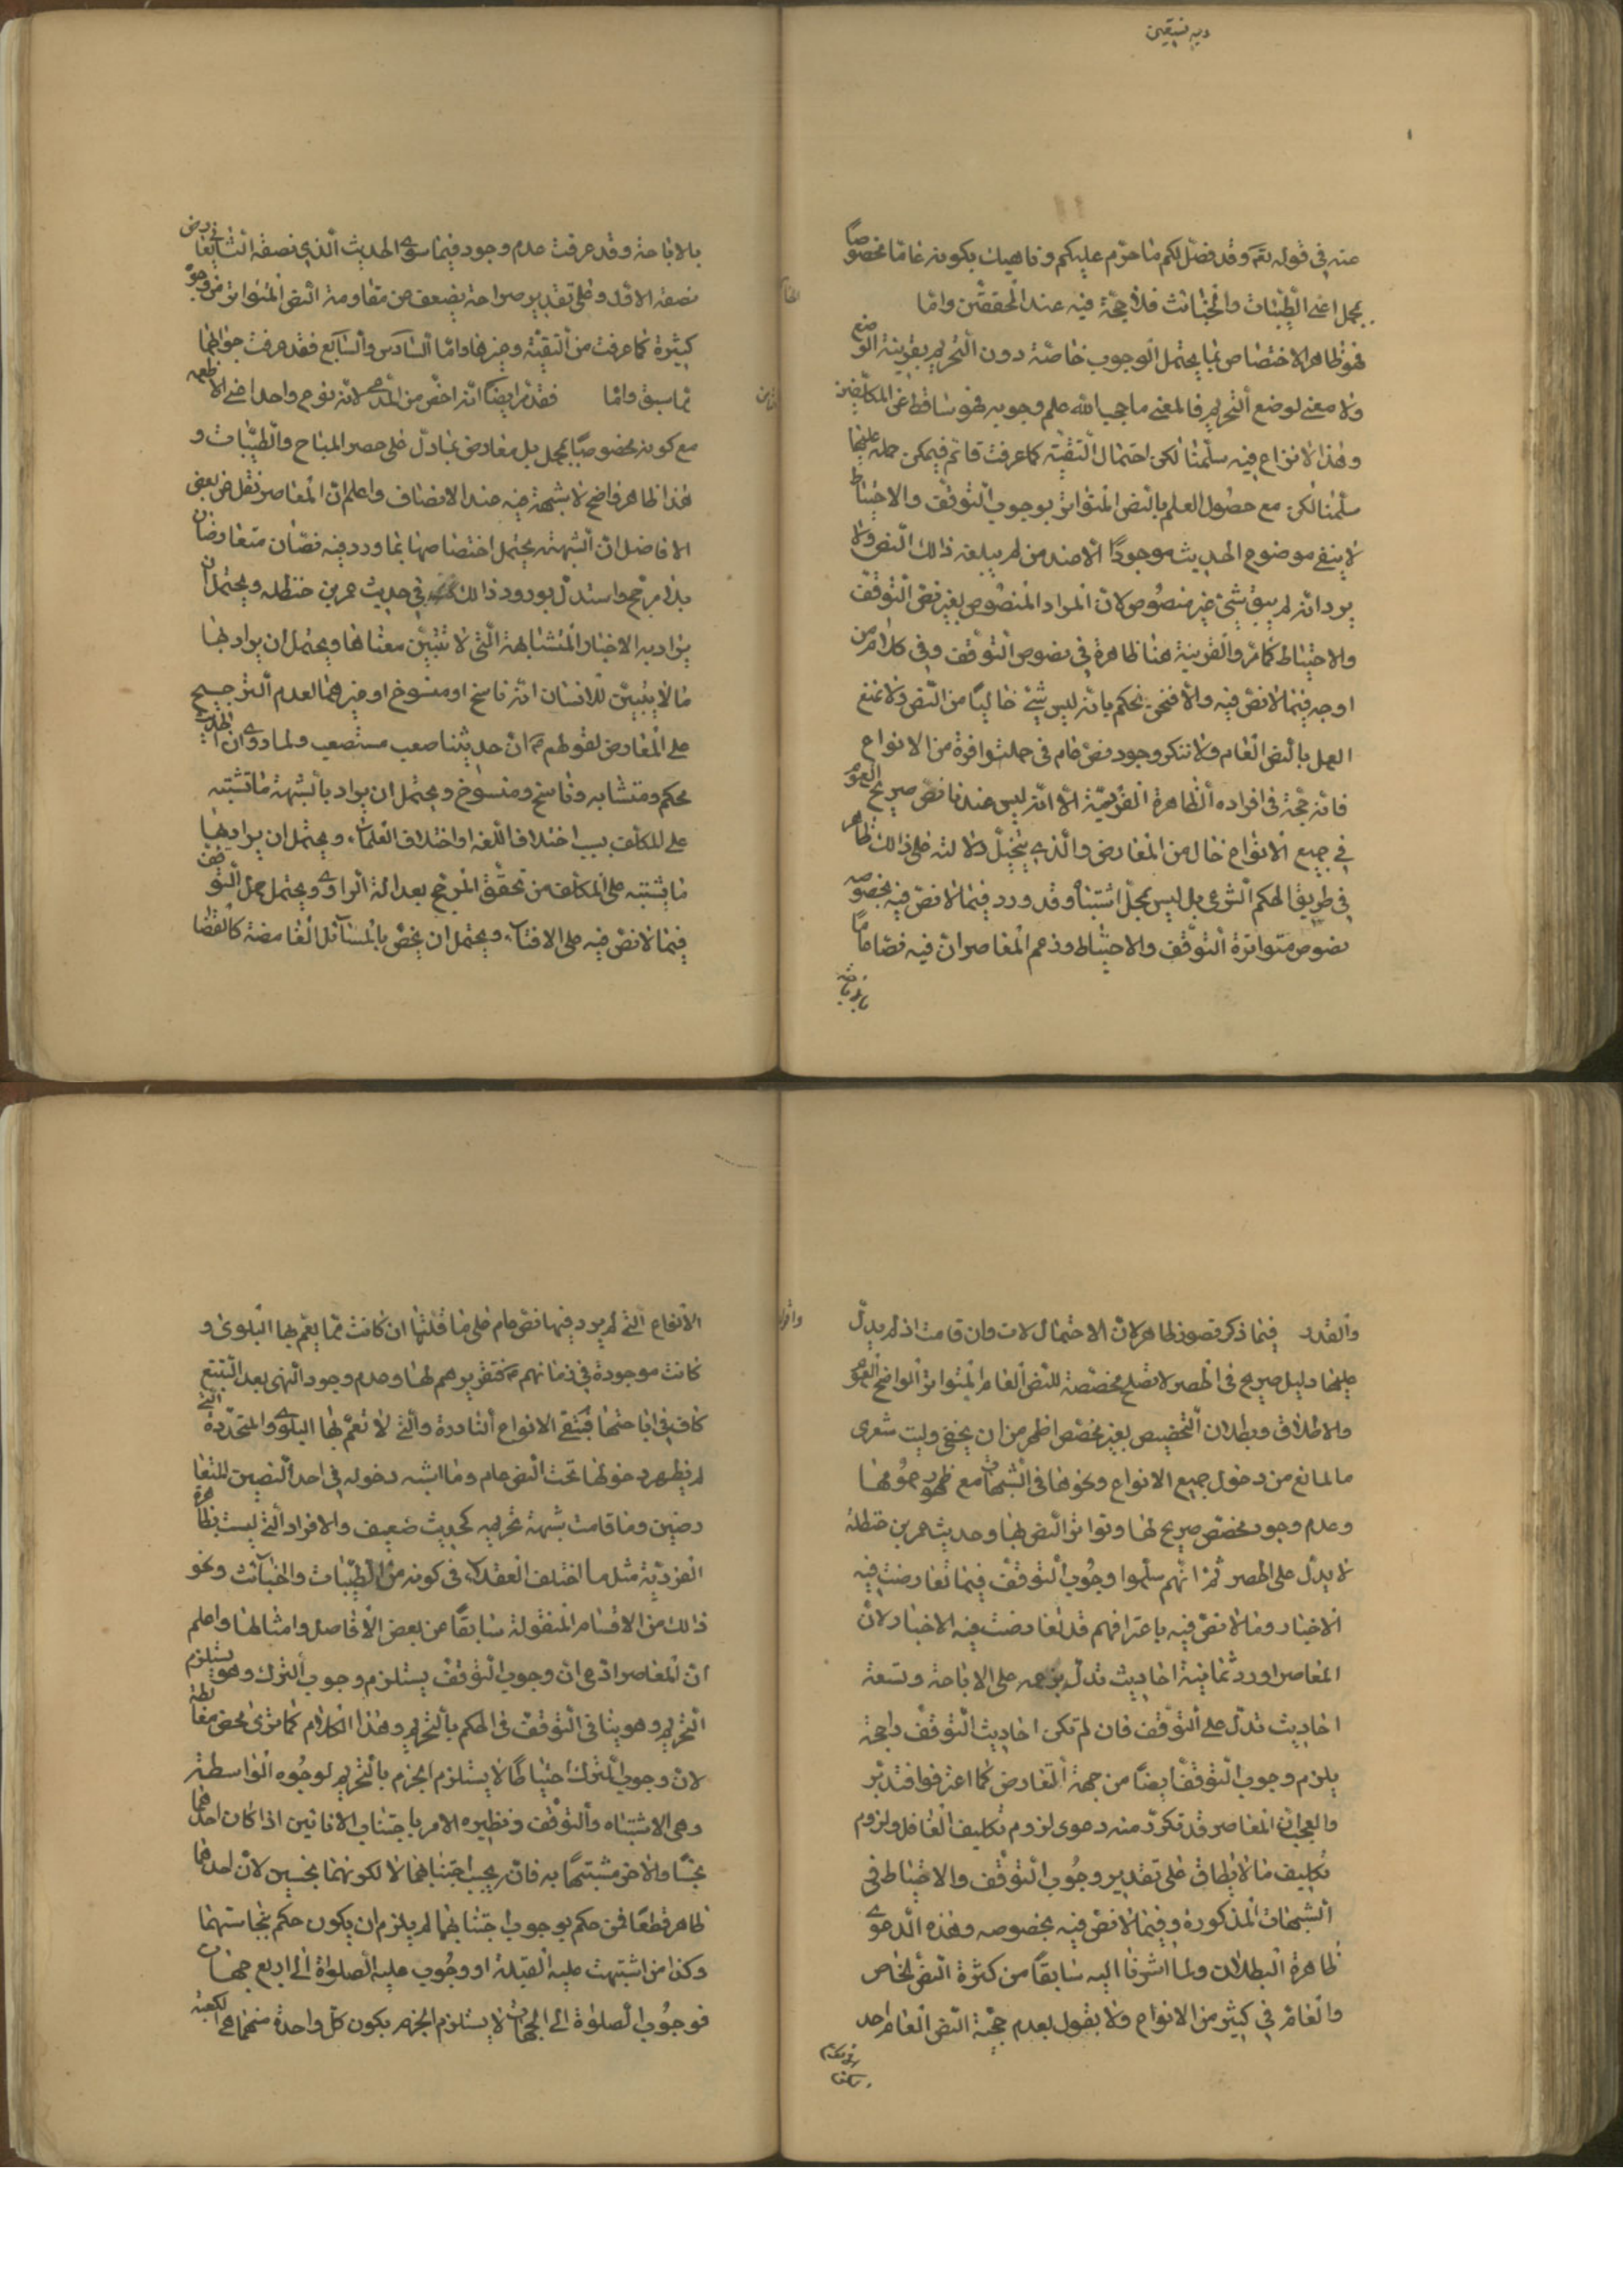 وبه نستعين
عنه في قوله تعم وقد فصّل لكم ما حرّم عليكم وناهيك بكونه عامّا مخصوصًا
بمجمل اعني الطيّبات والخبائث فلا حجّة فيه عند المحققين وامّا
فهو ظاهر الاختصاص بما يحتمل الوجوب خاصّة دون التحريم بقرينة الوضع
ولا معنى لوضع التحريم فالمعنى ما حجب الله علم وجوبه فهو ساقط عن المكلّفين
وهذا لا نزاع فيه سلّمنا لكن احتمال التقيّة كما عرفت قائم فيمكن حمله عليها
سلّمنا لكن مع حصول العلم بالنص المتواتر بوجوب التوقّف والاحتياط
لا يبقى موضوع الحديث موجودًا الا عند من لم يبلغه ذلك النص ولا
يرد انّه لم يبق شيء غير منصوص لانّ المراد المنصوص بغير نصّ التوقّف
والاحتياط كما مرّ والقرينة هنا ظاهرة في نصوص التوقّف وفي كلام من
اوجبه فيما لا نصّ فيه والّا فنحن نحكم بانّه ليس شيء خاليًا من النص ولا نمنع
العمل بالنص العام ولا ننكر وجود نصّ عام في جملة وافرة من الانواع
فانّه حجّة في افراده الظاهرة الفرديّة الّا انّه ليس عندنا نصّ صريح العموم
في جميع الانواع خال من المعارض والّذي يتخيّل دلالته على ذلك ظاهر
في طريق الحكم الشرعي بل ليس بمحلّ اشتباه وقد ورد فيما لا نصّ فيه بخصوصه
نصوص متواترة التوقّف والاحتياط وزعم المعاصر انّ فيه نصّا عامًا
بالاباحة
بالاباحة وقد عرفت عدم وجوده فيما سوى الحديث الّذي نصفه الثاني يعارض
نصفه الاوّل وعلى تقدير صراحته يضعف عن مقاومة النص المتواتر من وجوه
كثيرة كما عرفت من التقيّة وغيرها وامّا السّادس والسّابع فقد عرفت جوابهما
ممّا سبق وامّا فقد مرّ ايضًا انّه اخصّ من المدّعى لانّه نوع واحد اعني الاطعمه
مع كونه مخصوصًا بمجمل بل معارض بما دلّ على حصر المباح والطيّبات و
هذا ظاهر واضح لا شبهة فيه عند الانصاف واعلم انّ المعاصر نقل عن بعض
الافاضل انّ الشبهة يحتمل اختصاصها بما ورد فيه نصّان متعارضان
بلا مرجّح واستدلّ بورود ذلك في حديث عمر بن حنظله ويحتمل ان
يراد به الاخبار المتشابهة الّتي لا تتبيّن معناها ويحتمل ان يراد بها
ما لا يتبيّن للانسان انّه ناسخ او منسوخ او غيرهما لعدم الترجيح
على المعارض لقولهم ع انّ حديثنا صعب مستصعب ولما روى ان الحديث
محكم ومتشابه وناسخ ومنسوخ ويحتمل ان يراد بالشبهة ما تشتبه
على المكلّف بسبب اختلاف اللغه او اختلاف العلماء ويحتمل ان يراد بها
ما يشتبه على المكلّف من تحقّق المرجّح بعدالة الراوى ويحتمل حمل التوقف
فيما لا نصّ فيه على الافتاء ويحتمل ان يخصّ بالمسائل الغامضة كالقضا
والقدر فيما ذكر قصور ظاهر لانّ الاحتمالات وان قامت اذ لم يدلّ
عليها دليل صريح في الحصر لا تصلح مخصّصة للنص العام المتواتر الواضح العموم
والاطلاق وبطلان التخصيص بغير مخصّص اظهر من ان يخفى وليت شعرى
ما المانع من دخول جميع الانواع ونحوها في الشبهات مع ظهور عمومها
وعدم وجود مخصّص صريح لها وتواتر النص بها وحديث عمر بن حنظلة
لا يدلّ على الحصر ثم انّهم سلّموا وجوب التوقّف فيما تعارضت فيه
الاخبار وما لا نصّ فيه باعترافهم قد تعارضت فيه الاخبار لانّ
المعاصر اورد ثمانية احاديث تدلّ بزعمه على الاباحة وتسعة
احاديث تدلّ على التوقّف فان لم تكن احاديث التوقّف راجحة
يلزم وجوب التوقّف ايضًا من جهة التعارض كما اعترفوا فتدبّر
والعجب انّ المعاصر قد تكرّر منه دعوى لزوم تكليف الغافل ولزوم
تكليف ما لا يطاق على تقدير وجوب التوقّف والاحتياط في
الشبهات المذكورة وفيما لا نصّ فيه بخصوصه وهذه الدعوى
ظاهرة البطلان ولما اشرنا اليه سابقًا من كثرة النصّ الخاص
والعام في كثير من الانواع ولا يقول بعدم حجّية النص العام احد
الانواع التي لم يرد فيها نصّ عام على ما قلتها ان كانت ممّا يعمّ بها البلوى و
كانت موجودة في زمانهم ع فتقريرهم لها وعدم وجود النهى بعد التتبع
كاف في اباحتها فبقى الانواع النادرة والتي لا تعمّ بها البلوى والمتجدّدة التي
لم يظهر دخولها تحت النص عام وما اشبه دخوله في احد النصين المتعا
رضين وما قامت شبهة تحريمه كحديث ضعيف والافراد التي ليست بظاهرة
الفرديّة مثل ما اختلف العقلاء في كونه من الطيّبات والخبائث ونحو
ذلك من الاقسام المنقولة سابقًا من بعض الافاضل وامثالها واعلم
انّ المعاصر ادّعى انّ وجوب التوقّف يستلزم وجوب الترك وهو يستلزم
التحريم وهو ينافي التوقّف في الحكم بالتحريم وهذا الكلام كما ترى محض مغالطة
لانّ وجوب الترك احتياطًا لا يستلزم الجزم بالتحريم لوجوه الواسطة
وهي الاشتباه والتوقّف ونظيره الامر باجتناب الانائين اذا كان احدهما
نجسًا والاخر مشتبهًا به فانّه يجب اجتنابهما لا لكونهما نجسين لانّ احدهما
طاهر قطعًا فمن حكم بوجوب اجتنابهما لم يلزم ان يكون حكم بنجاستهما
وكذا من اشتبهت عليه القبلة او وجوب عليه الصلواة الى اربع جهات
فوجوب الصلوة الى الجهات لا يستلزم الجزم بكون كلّ واحدة منهما هي الكعبة